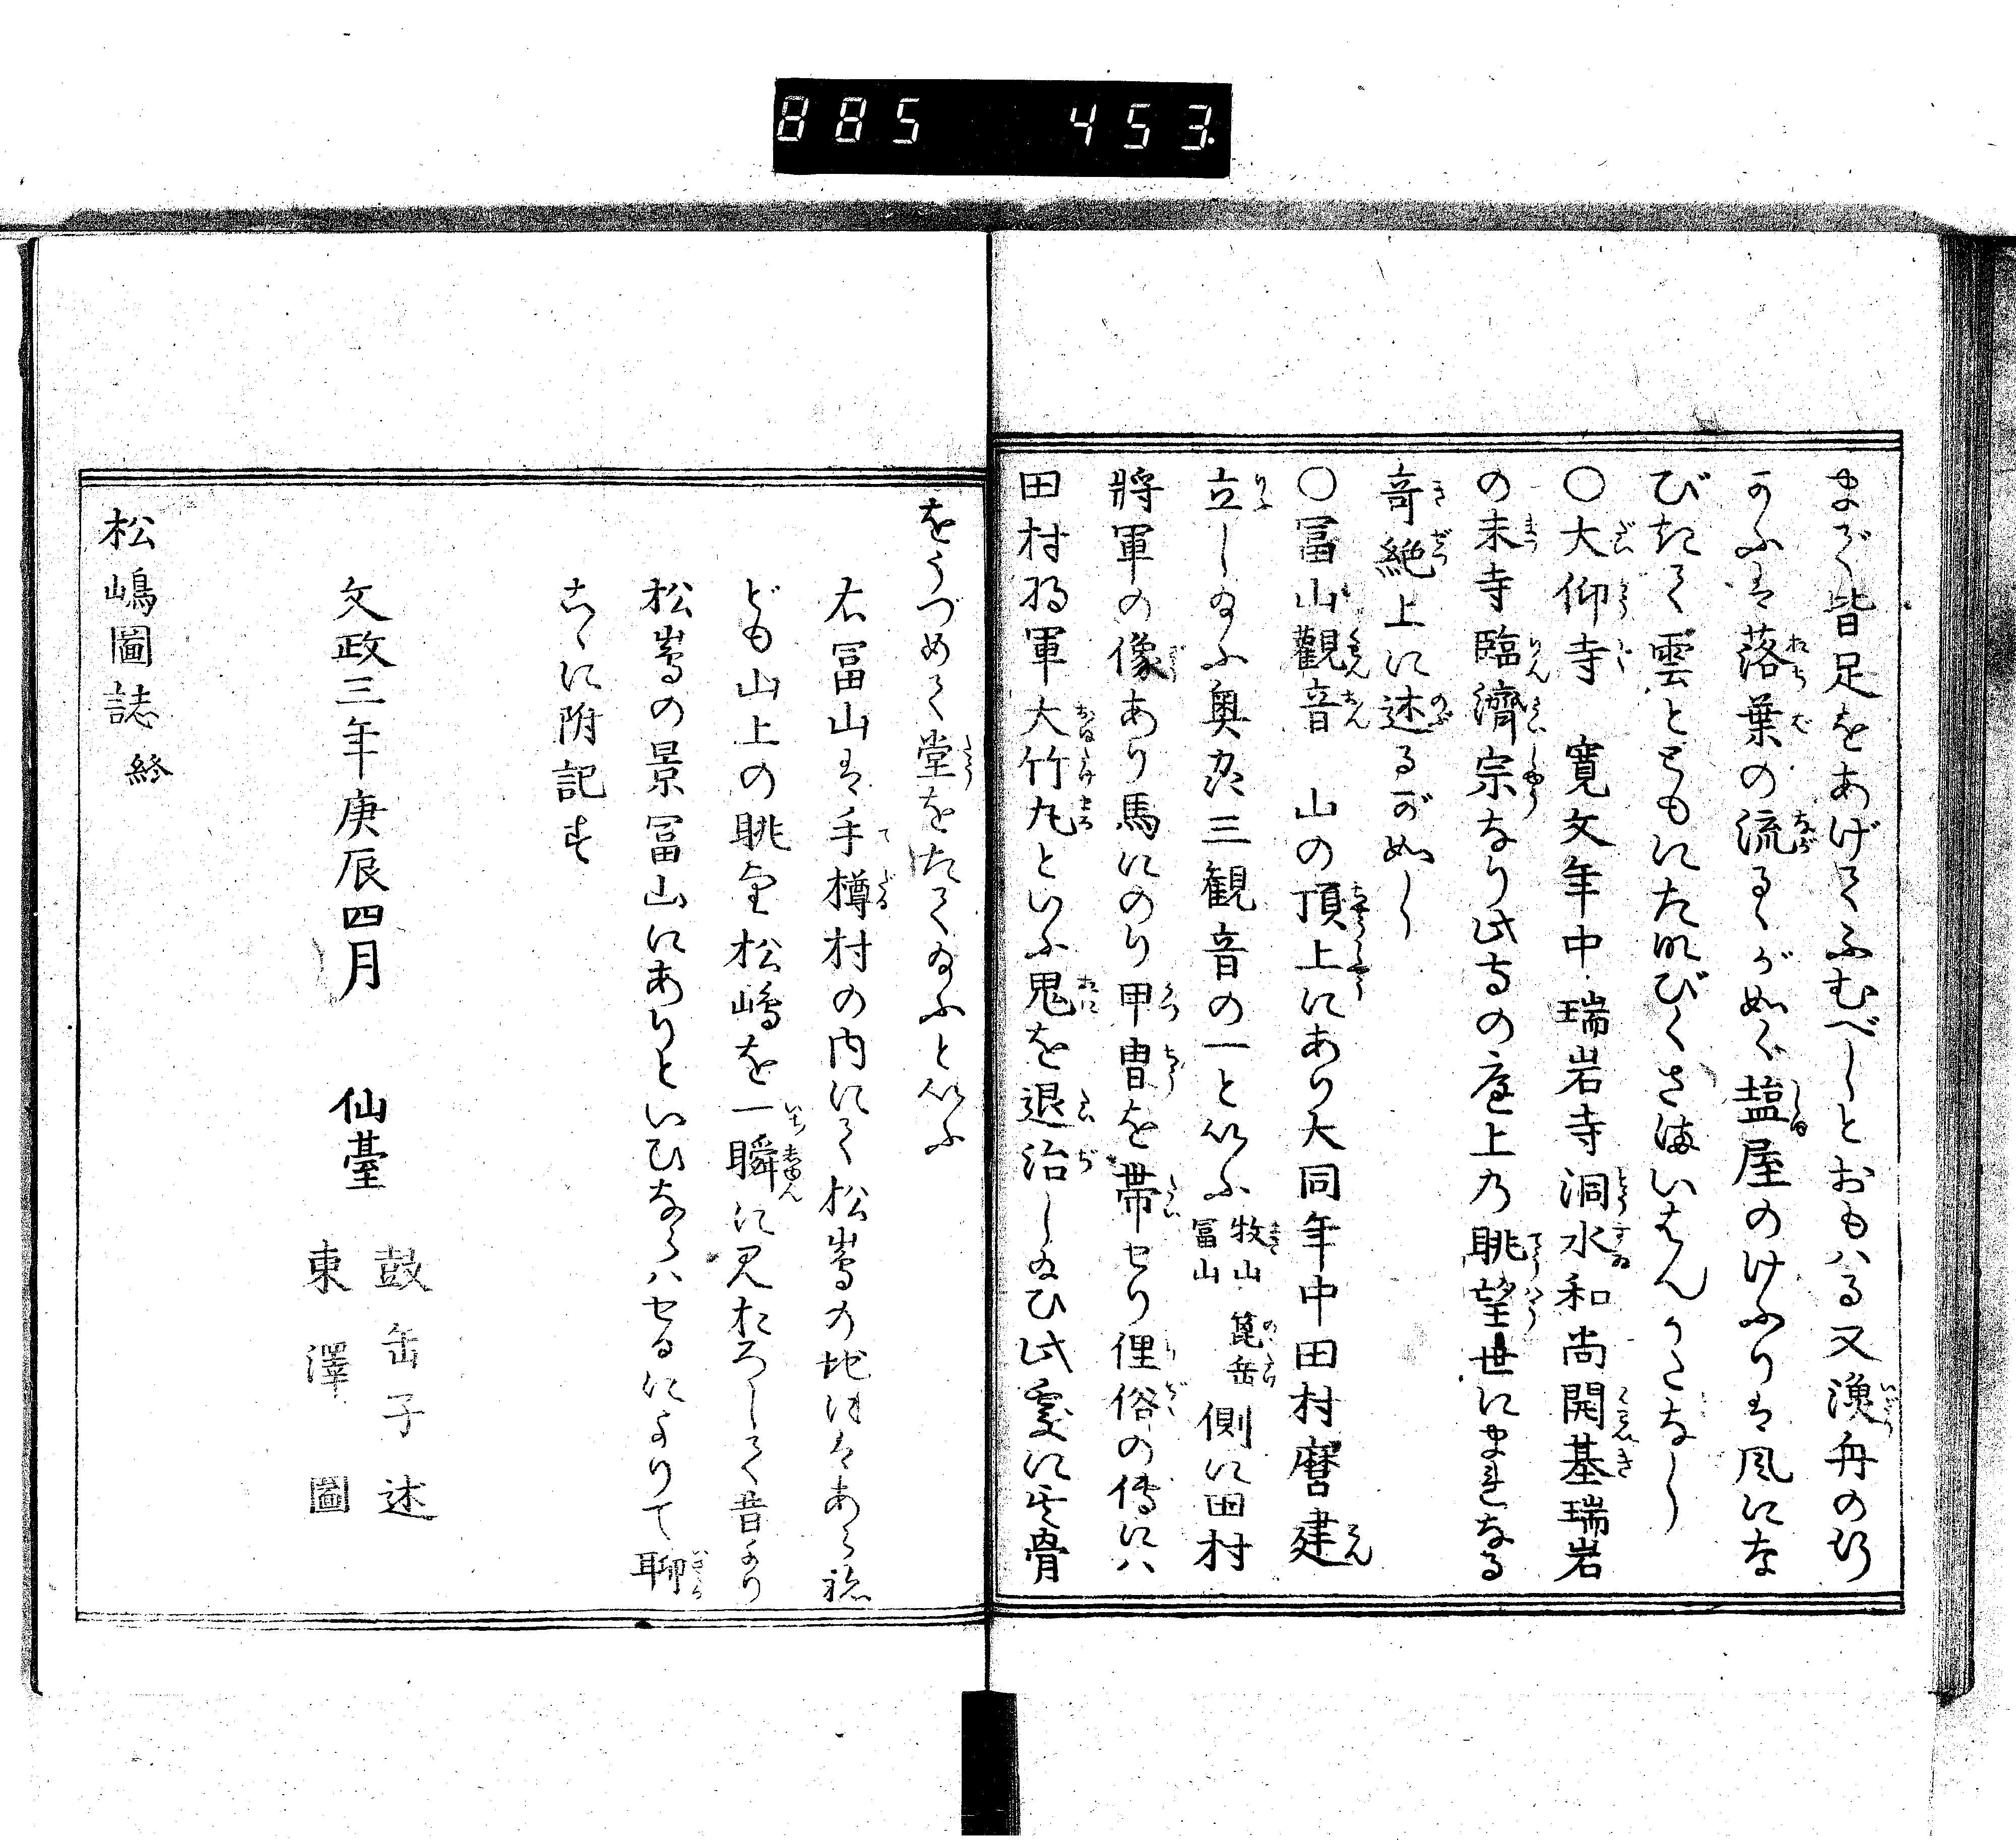 885 453
まで皆足をあげてふむべしとおもハる又漁舟の行
かふは落葉の流るゝが如く塩屋のけふりは風にな
びきて雲とゝもにたなびくさまいはんかたなし
○大仰寺 寛文年中瑞岩寺洞水和尚開基瑞岩
の末寺臨濟宗なり此寺の庭上乃眺望世にまれなる
竒絶上に述るが如し
○冨山觀音 山の頂上にあり大同年中田村麿建
立し給ふ奥州三観音の一といふ牧山 箟岳 冨山 側に田村
將軍の像あり馬にのり甲冑を帯せり俚俗の傳にハ
田村将軍大竹丸といふ鬼を退治し給ひ此處に其骨
をうづめて堂をたて給ふといふ
右冨山は手樽村の内にて松嶌の地にはあらね
ども山上の眺望松嶋を一瞬に見おろして昔より
松嶌の景冨山にありといひならハせるによりて聊
こゝに附記す
文政三年庚辰四月 仙臺 鼓缶子述
東澤圖
松嶋圖誌 終